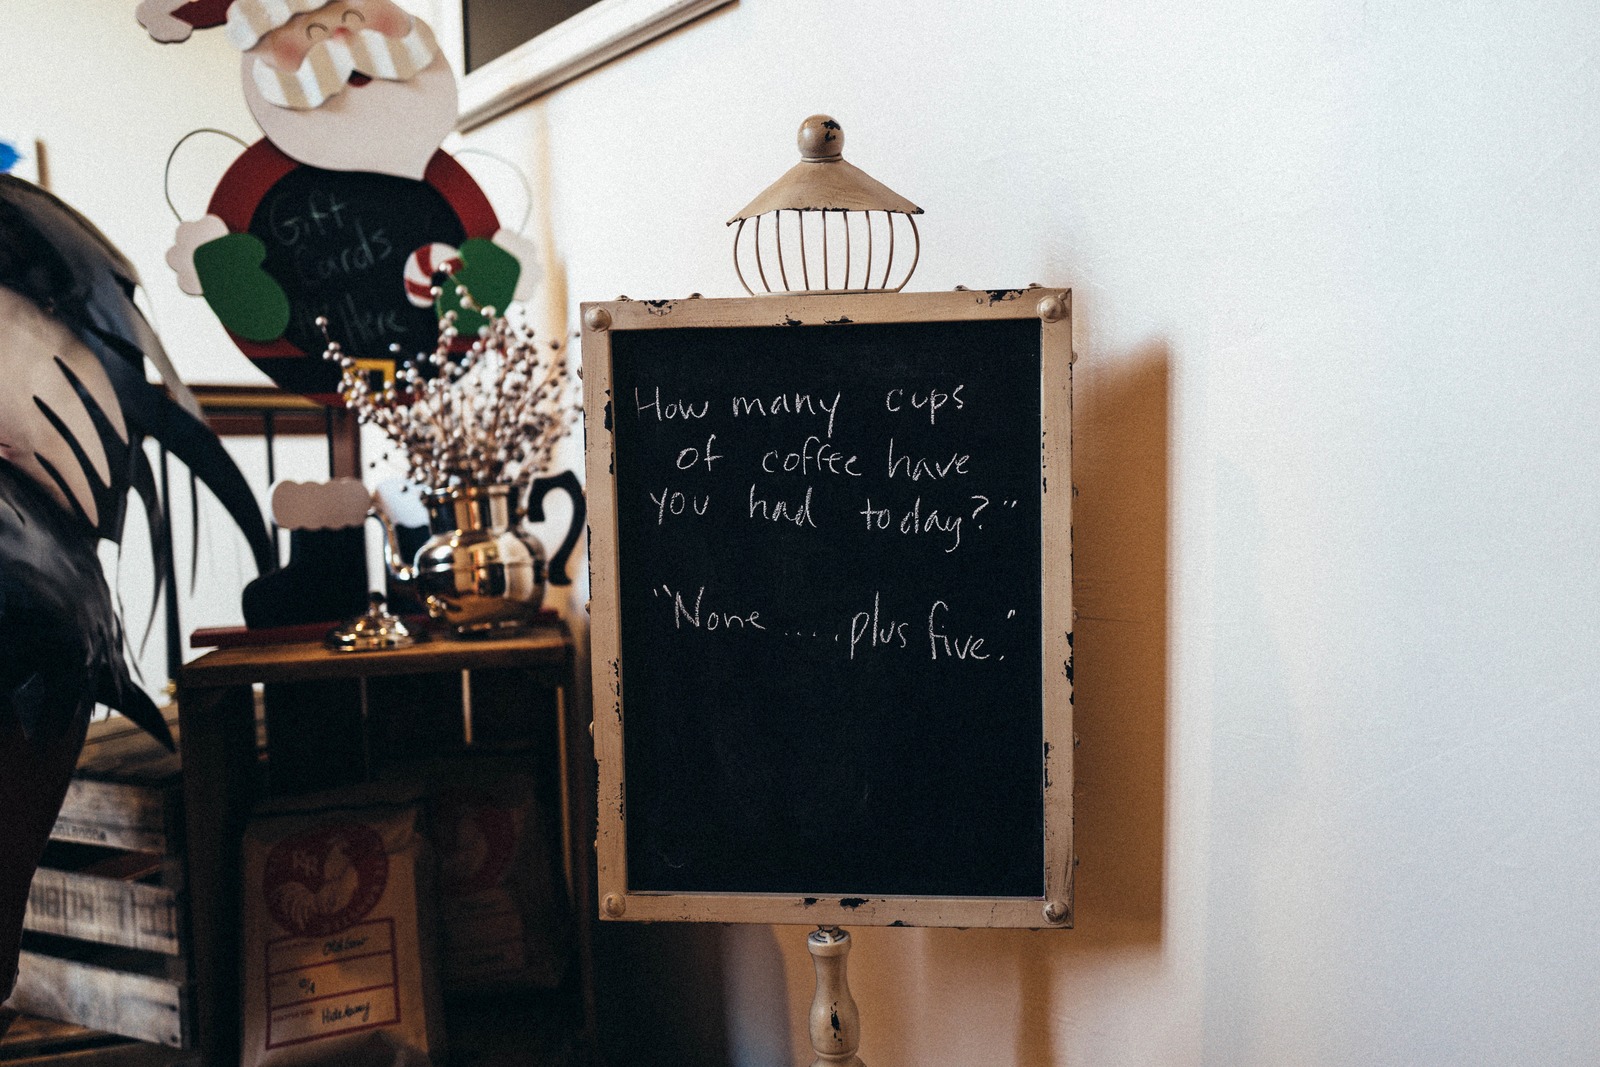 Gift
Cards
Here
How many cups
of coffee have
you had today?"
"None .....plus five."
RR
Hideaway